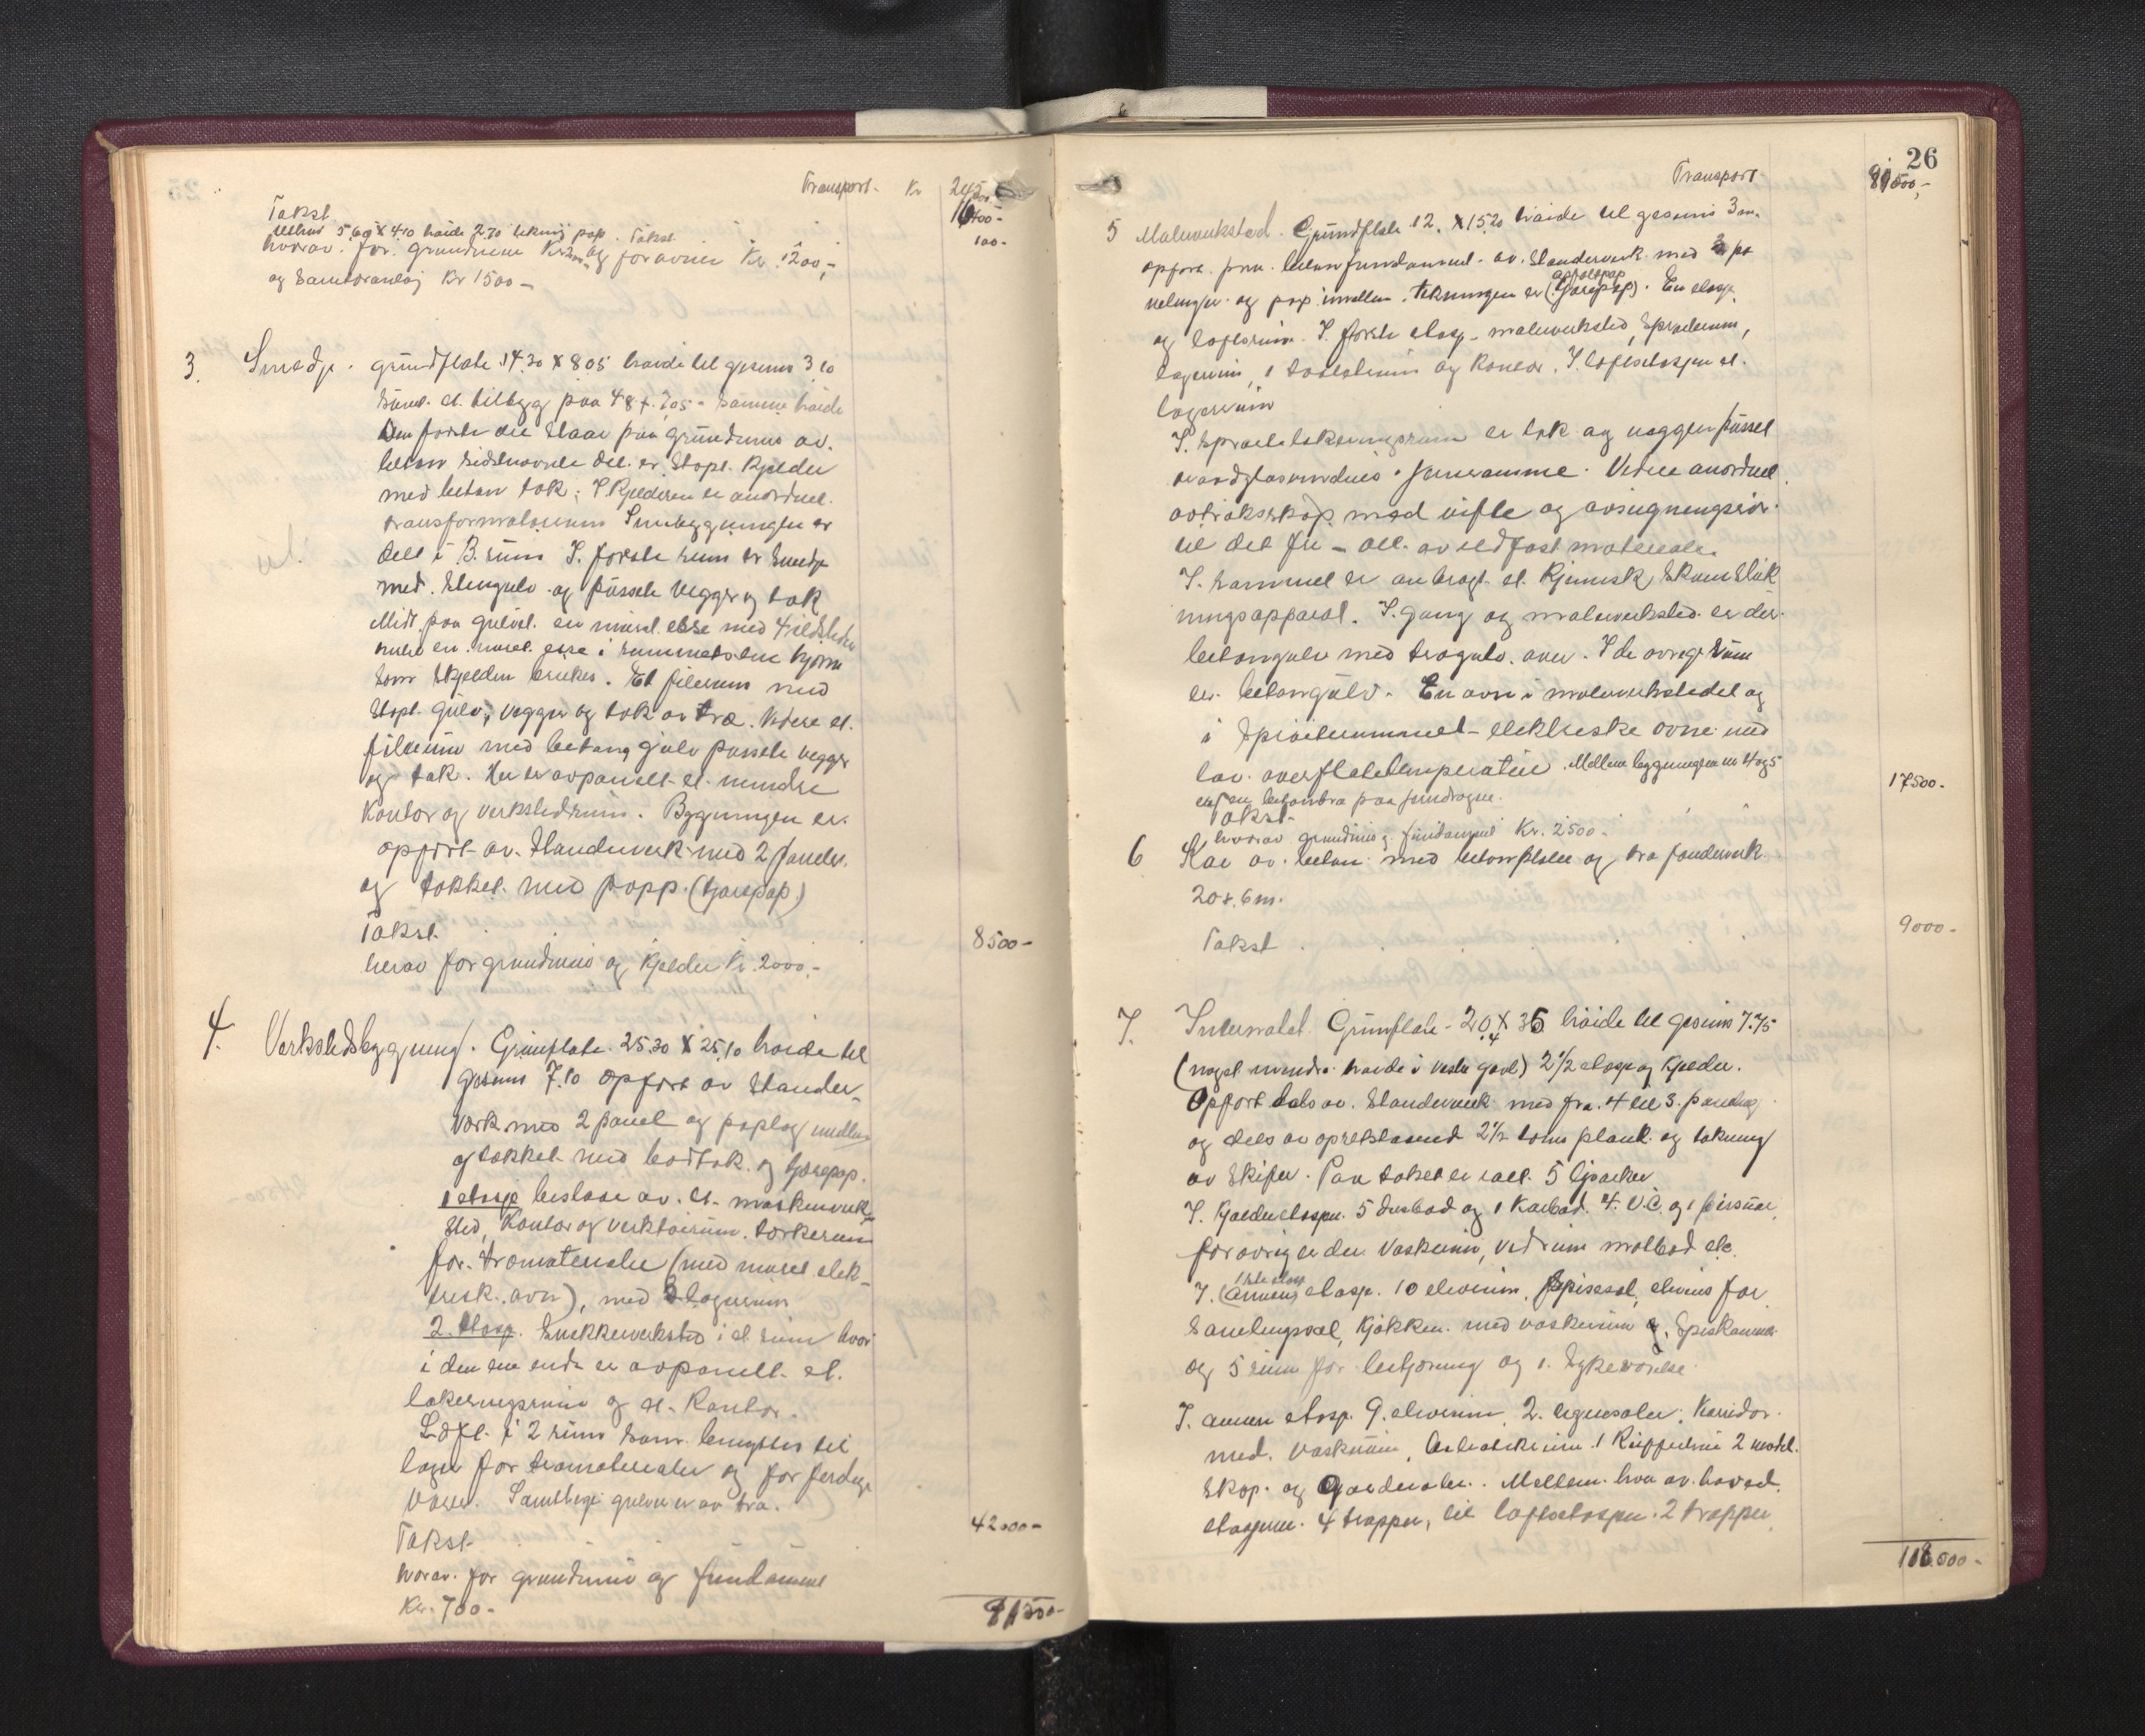 Transport. Kr 245
16400-
Takst
Uthus 5,60 X 4,10 høide 2,70 tekning pap. Takst 100-
hvorav for grundmur Kr og for ovner Kr. 1200,-
og Sanitæranlæg Kr 1500-
3. Smedje. grundflate 14.30 X 805 høide til gesims 3 10
samt et tilbygg paa 48 x 705 - samme høide
Den første del staar paa grundmur av
beton sidstnævnte del er støpt kjelder
med beton tak. I Kjelderen er anordnet
transformatorrum Smibygningen er
delt i 3 rum I første rum er Smedje
med Stengulv og pusset vegger og tak
Midt paa gulvet en muret esse med 4 ildsteder
en muret esse i rummets ene hjørne
som skjelden brukes. Et filerum med
støpt gulv, vegger og tak av træ. Videre et
filerum med betong gulv pussete vegger
og tak. Her er avpanelt et mindre
Kontor og verkstedrum. Bygningen er
opført av Standerverk med 2 paneler
og tækket med papp (tjærepap)
Takst 8500-
herav for grundmur og kjelder Kr. 2000,-
4. Verkstedsbygning. Grunflate 25.30 X 25.10 høide til
gesims 7.10 opført av Stander-
værk med 2 panel og paplag mellem
og tækket med bordtak og tjærepap.
1 etasje bestaar av et maskinverk
sted, Kontor og verktøirum, tørkerum
for træmaterialer (med muret elek-
trisk ovn), med 3 lagerrum
2. Etasje. Snekkerverksted i et rum hvor
i den ene ende er avpanelt et
lakeringsrum og et Kontor.
Loft i 2 rum som benyttes til
lager for træmaterialer og for ferdige
varer. Samtlige gulver er av træ.
Takst 42000-
hvorav for grundmur og fundament
Kr. 700-
91500-
26
Transport 91500,-
5 Malerverksted. Grundflate 12. X 15.20 høide til gesims 3 m.
opført paa betonfundament av Standerverk med 2 pa
nelinger og pap imellem. Tekningen er (Tjærepap). En etasje
asfaltpap
og loftsrum. I første etasje malerverksted, Sprøiterum,
lagerrum, 1 toiletrum og Kontor. I loftsetasjen et
lagerrum
I Sprøitelakeringsrum er tak og vegger pusset
traadglasvinduer i jernramme. Videre anordnet
avtrækskap med vifte og avsugningsrør
til det fri - alt av ildfast materiale.
I rummet er anbragt et Kjemisk Skumsluk
ningsapparat. I gang og malerverksted er der
betongulv med trægulv over. I de øvrige rum
er betongulv. En ovn i malerverkstedet og
i Sprøiterummet - elektriske ovner med
lav overflatetemperatur. Mellem bygningerne nr 4 og 5
17500-
Takst
hvorav grundmur og fundament Kr. 2500-
6 Kai av beton med betonpeler og træ fenderverk
20 x 6 m.
Takst 9000-
7. Internatet Grunflate - 20.4 X 36 høide til gesims 7.75
(noget mindre høide i vestre gavl) 2 1/2 etasje og kjelder.
Opført dels av Standerverk med fra 4 til 3 paneling
og dels av opretstaaend 2 1/2 toms plank og tækning
av Skifer. Paa taket er ialt 5 lysarker
I Kjelderetasjen 5 dusbad og 1 Karbad. 4 V.C. og 1 pissoir,
forøvrig er der Vaskerum, vedrum matbod etc.
1ste etasje
I (annen) etasje 10 elevrum, Spisesal, elevens for
Samlingssal, Kjøkken med vaskerum og Spiskammer
og 5 rum for betjening og 1 Sykeværelse.
I annen etasje 9 elevrum 2 lignesaler, Korridor
med Vaskerum, 1 Kufferum 2 modell
skap og Garderober. Mellem hver av hoved
etasjerne 4 trapper, til loftsetasjen 2 trapper
118000-